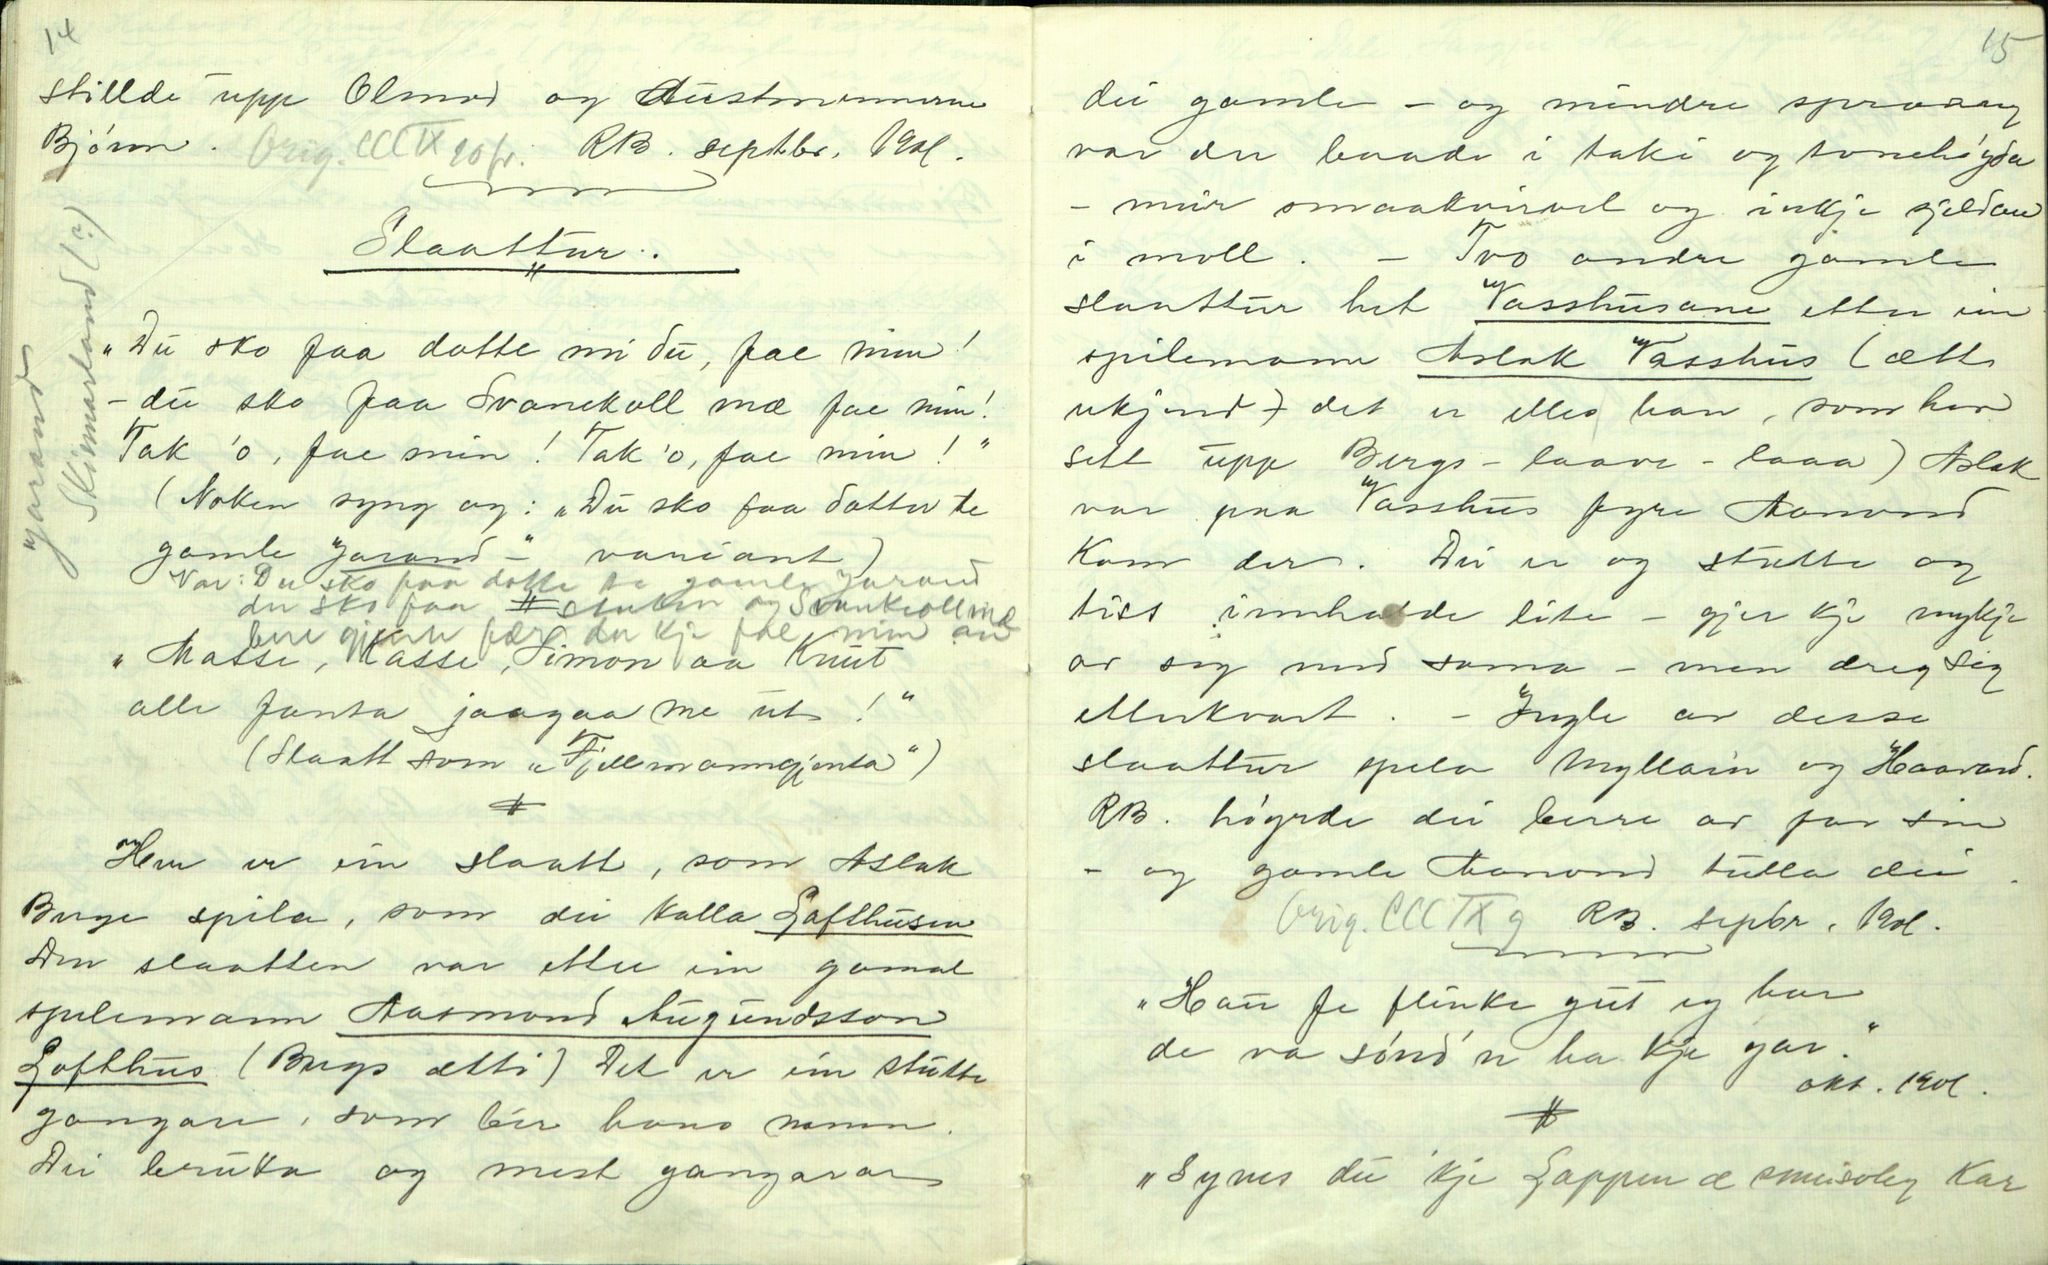 14
stillde upp Olmod og Austmennerne
Bjørn. Orig. CCCIX 90 fr. RB. septbr. 1901.
Slaattur.
"Du sko faa dotte mi du, fae min!
- du sko faa Svanekoll mæ fae min!
Tak 'o, fae min! Tak 'o, fae min!"
(Noken syng og: "Du sko faa dotter te
gamle Jarand -" variant)
Var: Du sko faa dotte te gamle Jarand
du sko faa og Svankoll mæ
bere gjente fær du kje fae min
Jarand
Skinnarland (?)
"Masse, Kasse, Simon aa Knut
alle fanta jaagaa me ut!"
(Slaatt som "Fjellmanngjenta")
Her er ein slaatt, som Aslak
Buge spila, som dei kalla Lofthusen
Den slaatten var etter ein gamal
spelemann Aasmond Augundsson
Lofthus (Bugs ætti) Det er ein stutte
gangare, som ber hans namn.
Dei bruka og mest gangarar
15
dei gamle - og mindre sprang
var der baade i taki og tonehøgda
- meir smaakvirvel og inkje sjeldan
i moll. - Tvo andre gamle
slaattur het Vasshusane etter ein
spilemann Aslak Vasshus (ætti
ukjend) det er elles han, som har
sett upp Bergs-laave-laaa) Aslak
var paa Vasshus fyre Aamond
kom der. Dei er og stutte og
tiss innhalde lite - gjer kje mykje
av seg med sama - men dreg seg
etterkvart. - Ingle av desse
slaattur spela Myllarin og Haavard.
RB. høyrde dei berre av far sin
- og gamle Aamond tulla dei.
Orig. CCCIX 9 RB. sepbr. 1901.
"Hau fe flinke gut eg har
de va sønd'n ha kje gar."
okt. 1901.
"Synes du 'kje Lappen æ smeisoleg kar